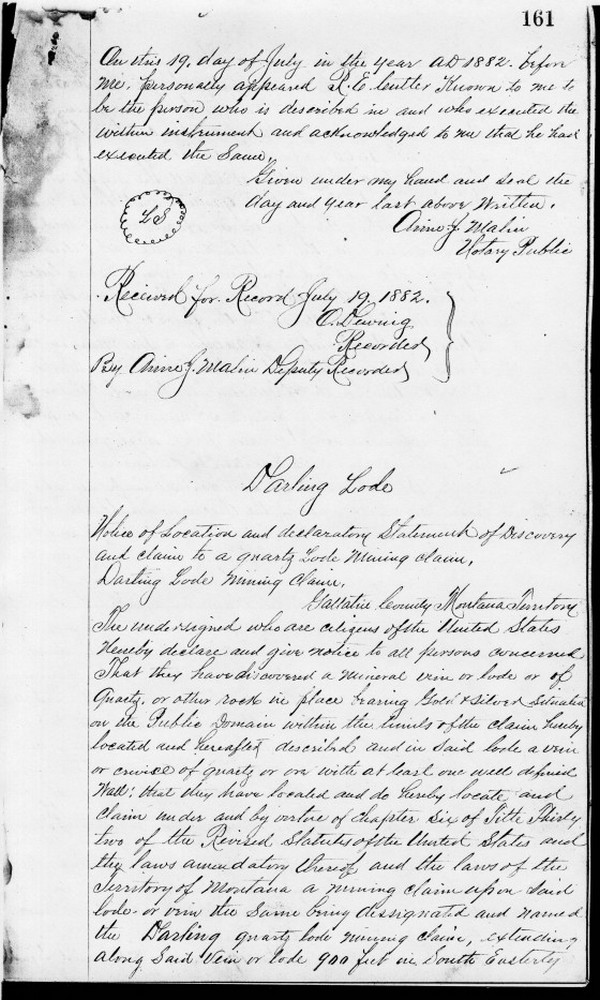 161
On this 19. day of July in the year AD 1882. before
me, personally appeared R. E. Cutler Known to me to
be the person who is described in and who executed the
within instrument and acknowledged to me that he had
executed the Same,
Given under my hand and seal the
day and year last above Written.
L S
J. Malin
Notary Public
Received for Record July 19, 1882.
O. Dewing
Recorder
By J. Malin Deputy Recorder
Darling Lode
Notice of Location and declaratory Statement of Discovery
and claim to a quartz Lode Mining claim,
Darling Lode Mining Claim,
Gallatin County Montana Territory
The undersigned who are citizens of the United States
Hereby declare and give notice to all persons concerned
That they have discovered a mineral vein or lode or of
Quartz, or other rock in place bearing Gold & Silver Situated
on the Public Domain within the limits of the claim hereby
located and hereafter described and in said lode a vein
or crevice of quartz or ore with at least one well defined
Wall; that they have located and do hereby locate and
claim under and by virtue of chapter Six of Title Thirty
two of the Revised Statutes of the United States and
the laws amendatory thereof and the laws of the
Territory of Montana a mining claim upon said
lode or vein the Same being dessignated and named
the Darling quartz lode mining claim, extending
along Said Vein or lode 900 feet in South Easterly